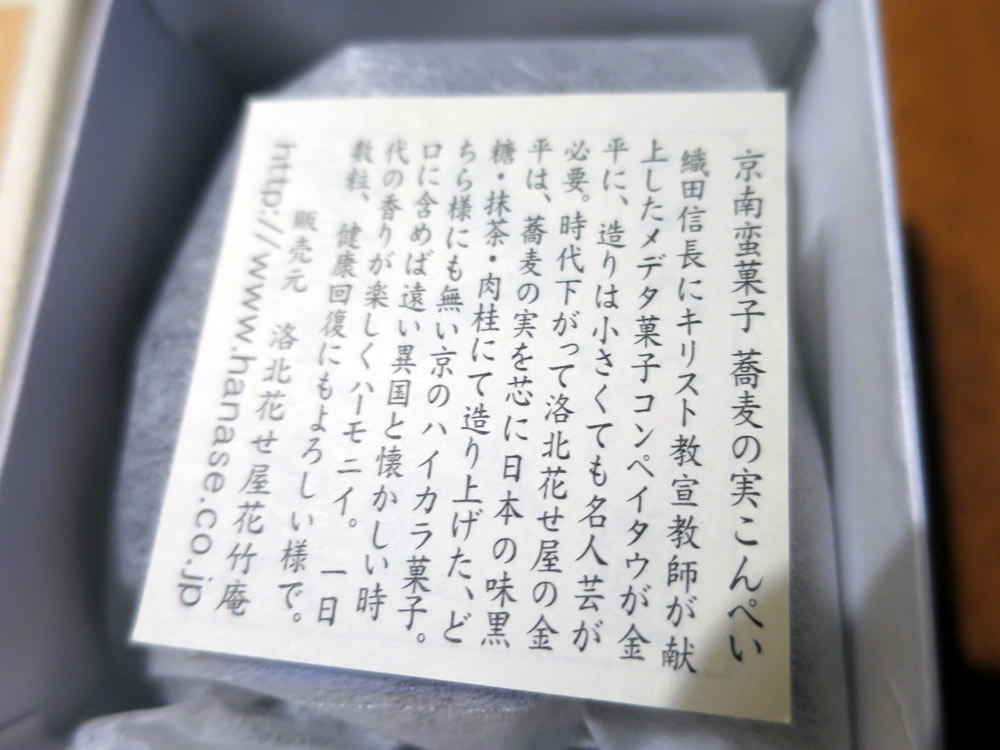 京南蛮菓子 蕎麦の実こんぺい
織田信長にキリスト教宣教師が献
上したメデタ菓子コンペイタウが金
平に、造りは小さくても名人芸が
必要。時代下がって洛北花せ屋の金
平は、蕎麦の実を芯に日本の味黒
糖・抹茶・肉桂にて造り上げた、ど
ちら様にも無い京のハイカラ菓子。
口に含めば遠い異国と懐かしい時
代の香りが楽しくハーモニイ。一日
数粒、健康回復にもよろしい様で。
販売元 洛北花せ屋花竹庵
http://www.hanase.co.jp